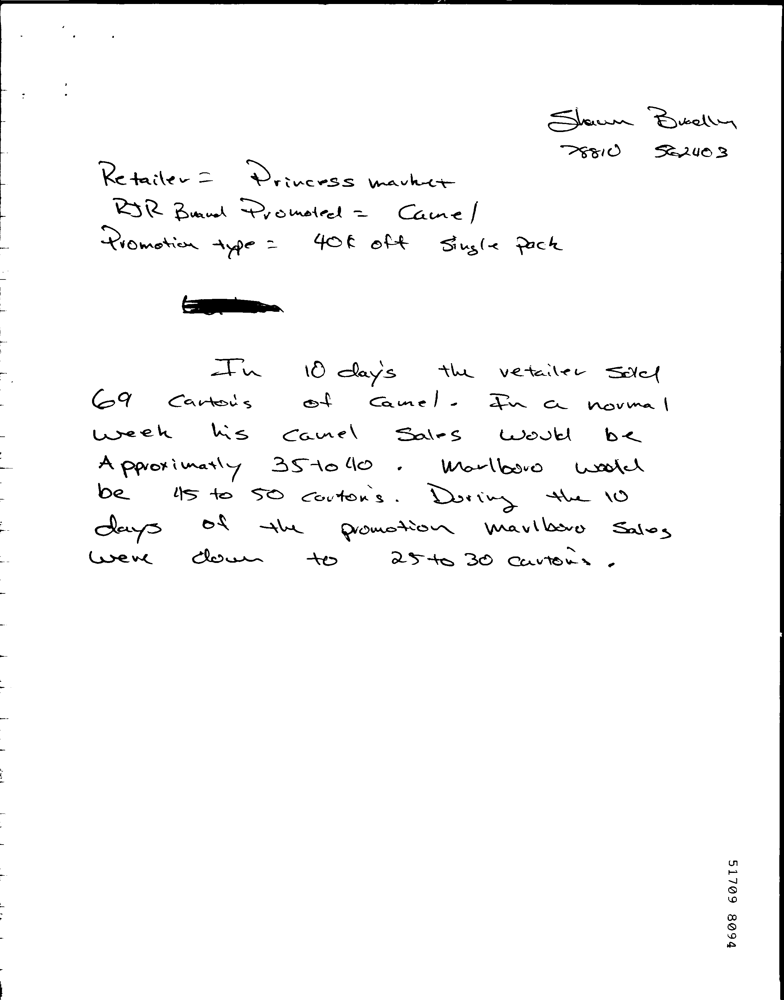 Shawn Bradley
78810 562403
Retailer = Princess market
RJR Brand Promoted = Camel
Promotion type = 40¢ off Single Pack
In 10 day's the retailer sold
69 Carton's of Camel. In a normal
week his camel Sales would be
Approximatly 35 to 40. Marlboro would
be 45 to 50 carton's. During the 10
days of the promotion marlboro Sales
were down to 25 to 30 carton's.
51709 8094